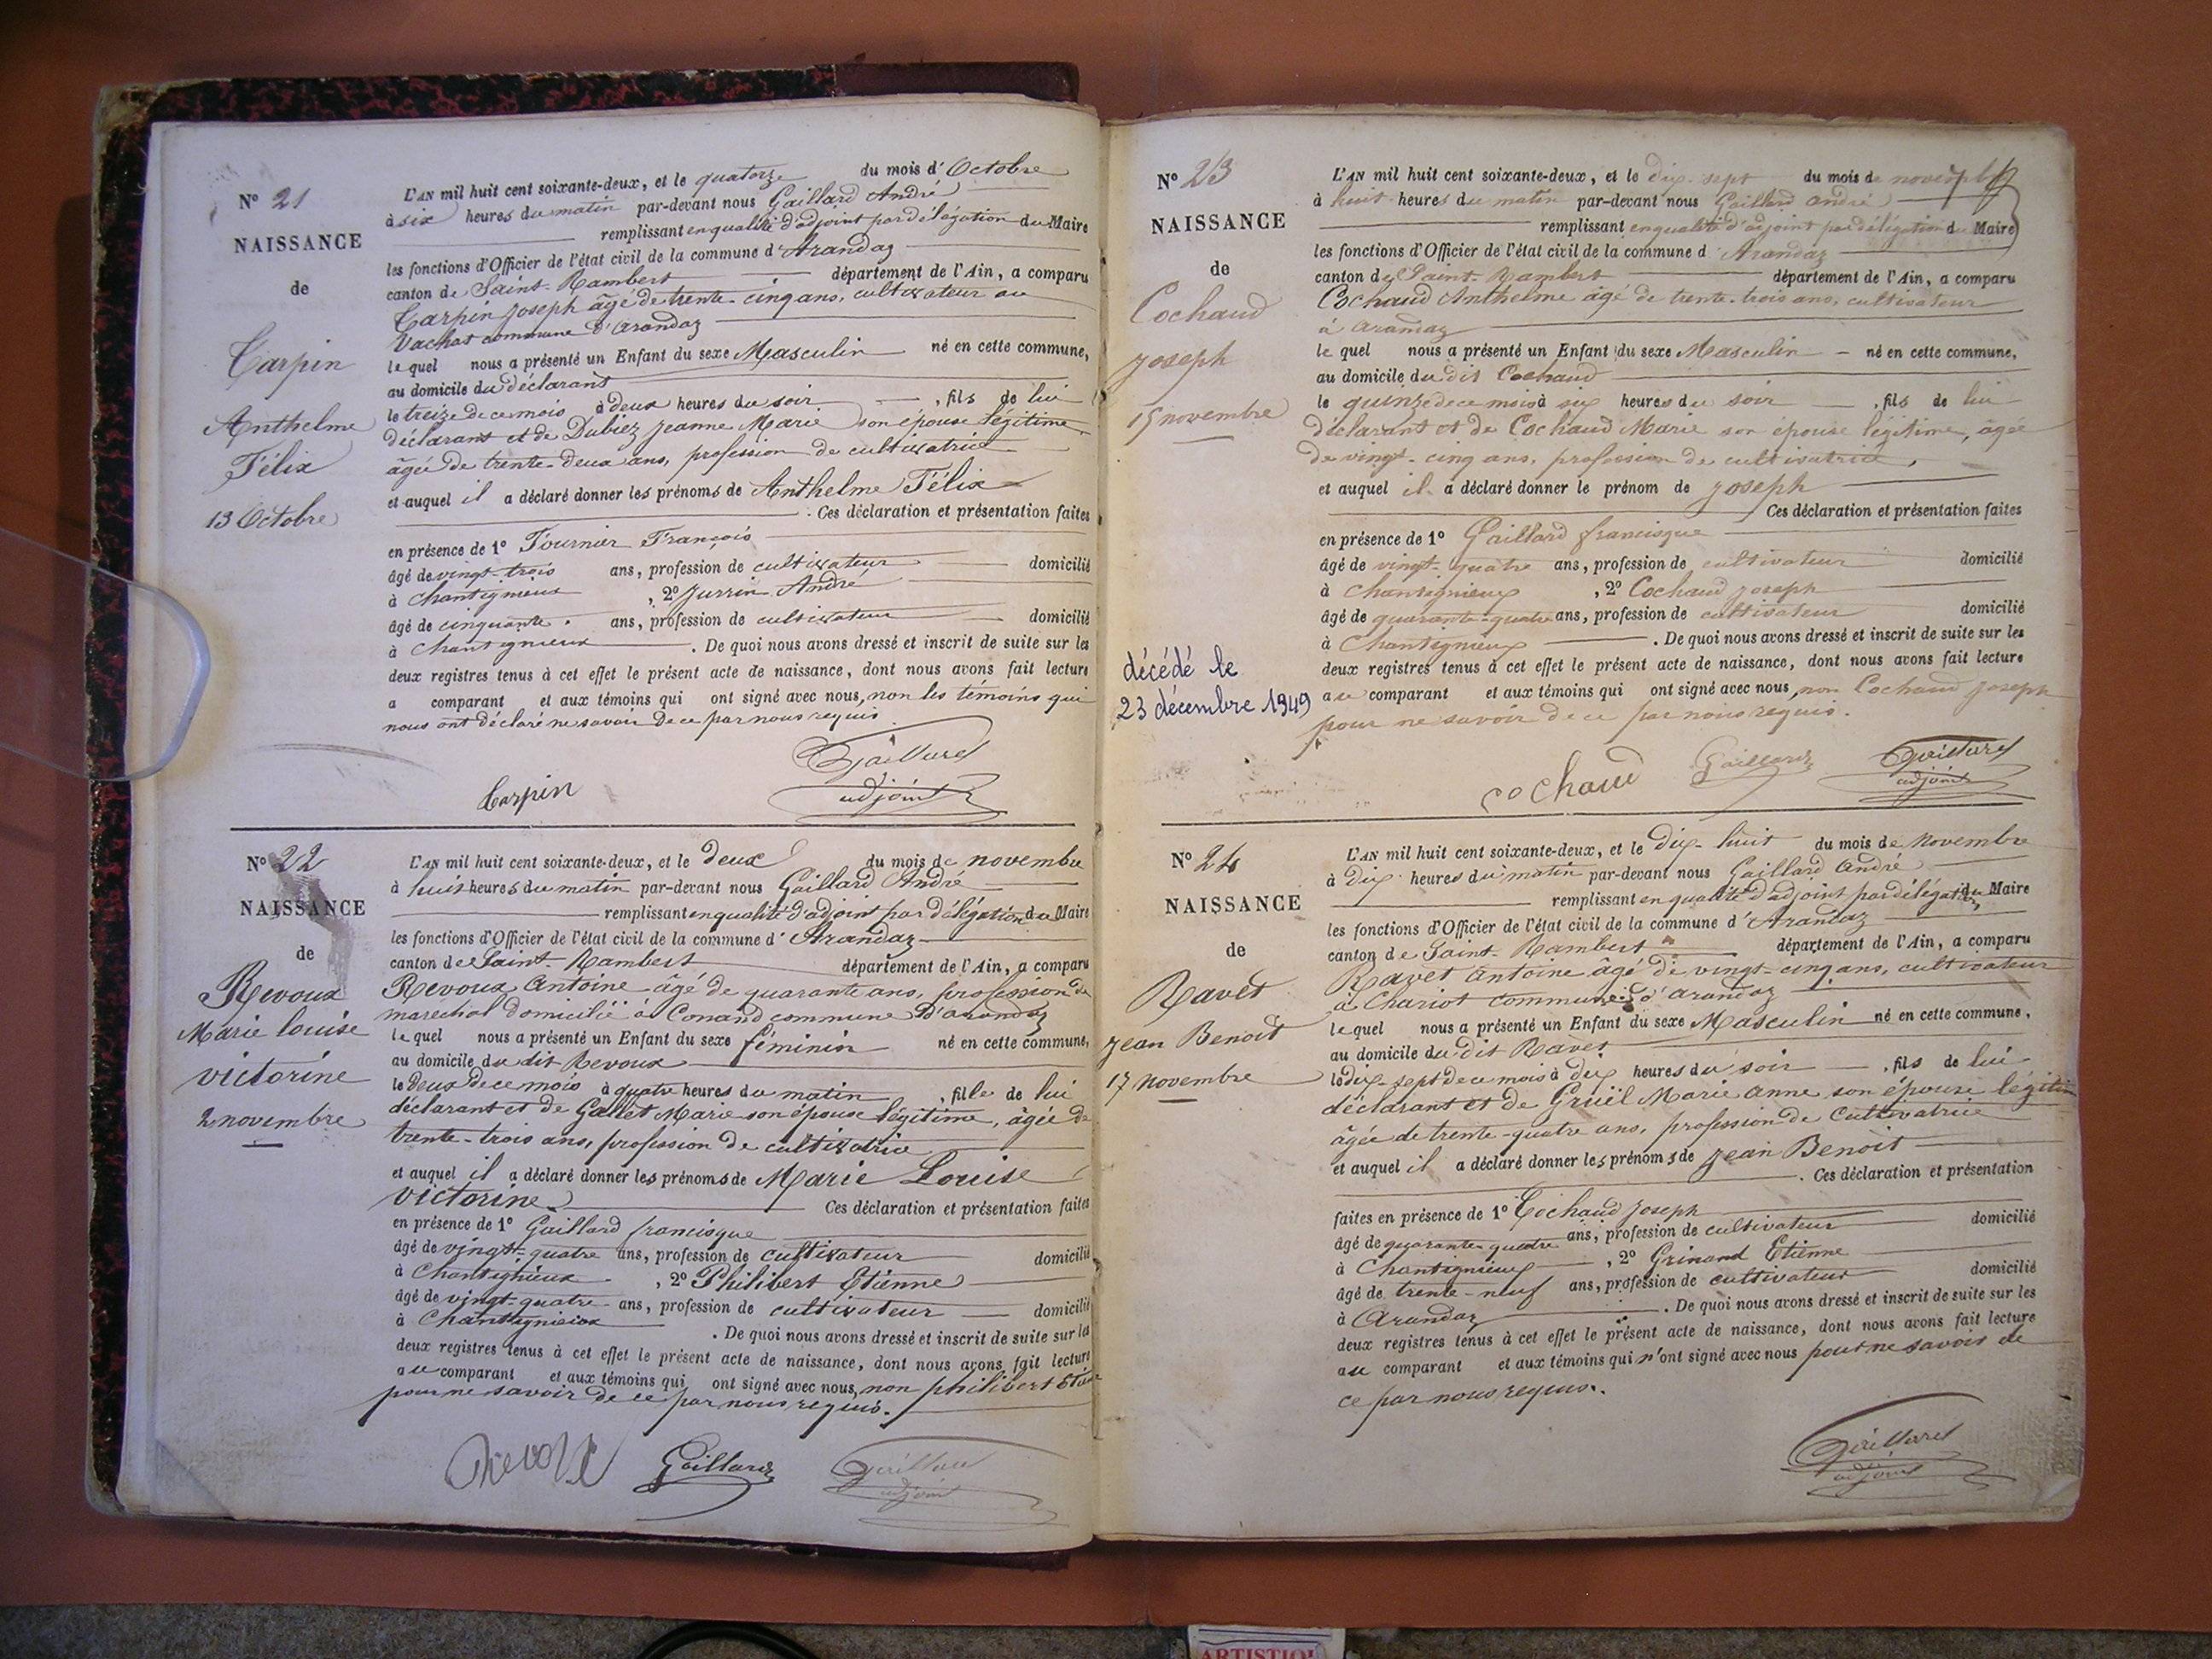 N° 21
NAISSANCE
de
Carpin
Anthelme
Félix
13 Octobre
L'AN mil huit cent soixante-deux, et le quatorze du mois d'Octobre
à six heures du matin par-devant nous Gaillard André
remplissant en qualité d'adjoint par délégation du Maire
les fonctions d'Officier de l'état civil de la commune d'Arandaz
canton de Saint-Rambert département de l'Ain, a comparu
Carpin Joseph âgé de trente-cinq ans, cultivateur au
Vachat commune d'Arandaz
lequel nous a présenté un Enfant du sexe Masculin né en cette commune,
au domicile du déclarant
le treize de ce mois à deux heures du soir, fils de lui
déclarant et de Dubiez Jeanne Marie son épouse légitime
âgée de trente-deux ans, profession de cultivatrice
et auquel il a déclaré donner les prénoms de Anthelme Félix
. Ces déclaration et présentation faites
en présence de 1° Tournier François
âgé de vingt-trois ans, profession de cultivateur domicilié
à Chantignieux, 2° Jurrin André
âgé de cinquante ans, profession de cultivateur domicilié
à Chantignieux. De quoi nous avons dressé et inscrit de suite sur les
deux registres tenus à cet effet le présent acte de naissance, dont nous avons fait lecture
a comparant et aux témoins qui ont signé avec nous, non les témoins qui
nous ont déclaré ne savoir de ce par nous requis
Carpin
Gaillard
adjoint
N° 22
NAISSANCE
de
Revoux
Marie Louise
victorine
2 novembre
L'AN mil huit cent soixante-deux, et le deux du mois de novembre
à huit heures du matin par-devant nous Gaillard André
remplissant en qualité d'adjoint par délégation du Maire
les fonctions d'Officier de l'état civil de la commune d'Arandaz
canton de Saint-Rambert département de l'Ain, a comparu
Revoux Antoine âgé de quarante ans, profession de
marechal domicilié à Conand commune d'arandaz
lequel nous a présenté un Enfant du sexe féminin né en cette commune,
au domicile du dit Revoux
le deux de ce mois à quatre heures du matin, fille de lui
déclarant et de Gallet Marie son épouse légitime, âgée de
trente-trois ans, profession de cultivatrice
et auquel il a déclaré donner les prénoms de Marie Louise
victorine Ces déclaration et présentation faites
en présence de 1° Gaillard francisque
âgé de vingt-quatre ans, profession de cultivateur domicilié
à Chantignieux, 2° Philibert Etienne
âgé de vingt-quatre ans, profession de cultivateur domicilié
à Chantignieux. De quoi nous avons dressé et inscrit de suite sur les
deux registres tenus à cet effet le présent acte de naissance, dont nous avons fait lecture
au comparant et aux témoins qui ont signé avec nous, non philibert Etienne
pour ne savoir de ce par nous requis.
Revoux Gaillard Gaillard
adjoint
N° 23
NAISSANCE
de
Cochaud
Joseph
15 novembre
décédé le
23 décembre 1949
L'AN mil huit cent soixante-deux, et le dix-sept du mois de novembre
à huit heures du matin par-devant nous Gaillard andré
remplissant en qualité d'adjoint par délégation d Maire
les fonctions d'Officier de l'état civil de la commune d'Arandaz
canton de Saint-Rambert département de l'Ain, a comparu
Cochaud Anthelme âgé de trente-trois ans, cultivateur
à arandaz
le quel nous a présenté un Enfant du sexe Masculin né en cette commune,
au domicile du dit Cochaud
le quinze de ce mois à six heures du soir, fils de lui
déclarant et de Cochaud Marie son épouse légitime, âgée
de vingt-cinq ans, profession de cultivatrice,
et auquel il a déclaré donner le prénom de Joseph
Ces déclaration et présentation faites
en présence de 1° Gaillard francisque
âgé de vingt-quatre ans, profession de cultivateur domicilié
à Chantignieux, 2° Cochaud Joseph
âgé de quarante-quatre ans, profession de cultivateur domicilié
à Chantignieux. De quoi nous avons dressé et inscrit de suite sur les
deux registres tenus à cet effet le présent acte de naissance, dont nous avons fait lecture
au comparant et aux témoins qui ont signé avec nous, non Cochaud Joseph
pour ne savoir de ce par nous requis.
Cochaud Gaillard Gaillard
adjoint
N° 24
NAISSANCE
de
Ravet
Jean Benoit
17 novembre
L'AN mil huit cent soixante-deux, et le dix-huit du mois de novembre
à dix heures du matin par-devant nous Gaillard andré
remplissant en qualité d'adjoint par délégation du Maire
les fonctions d'Officier de l'état civil de la commune d'Arandaz
canton de Saint-Rambert département de l'Ain, a comparu
Ravet Antoine âgé de vingt-cinq ans, cultivateur
à Chariot commune d'arandaz
lequel nous a présenté un Enfant du sexe Masculin né en cette commune,
au domicile du dit Ravet
le dix-sept de ce mois à dix heures du soir, fils de lui
déclarant et de Gruël Marie Anne son épouse légitime
âgée de trente-quatre ans, profession de Cultivatrice
et auquel il a déclaré donner les prénoms de Jean Benoit
. Ces déclaration et présentation
faites en présence de 1° Cochaud Joseph
âgé de quarante-quatre ans, profession de cultivateur domicilié
à Chantignieux, 2° Grinand Etienne
âgé de trente-neuf ans, profession de cultivateur domicilié
à Arandaz. De quoi nous avons dressé et inscrit de suite sur les
deux registres tenus à cet effet le présent acte de naissance, dont nous avons fait lecture
au comparant et aux témoins qui n'ont signé avec nous pour ne savoir de
ce par nous requis.
Gaillard
adjoint